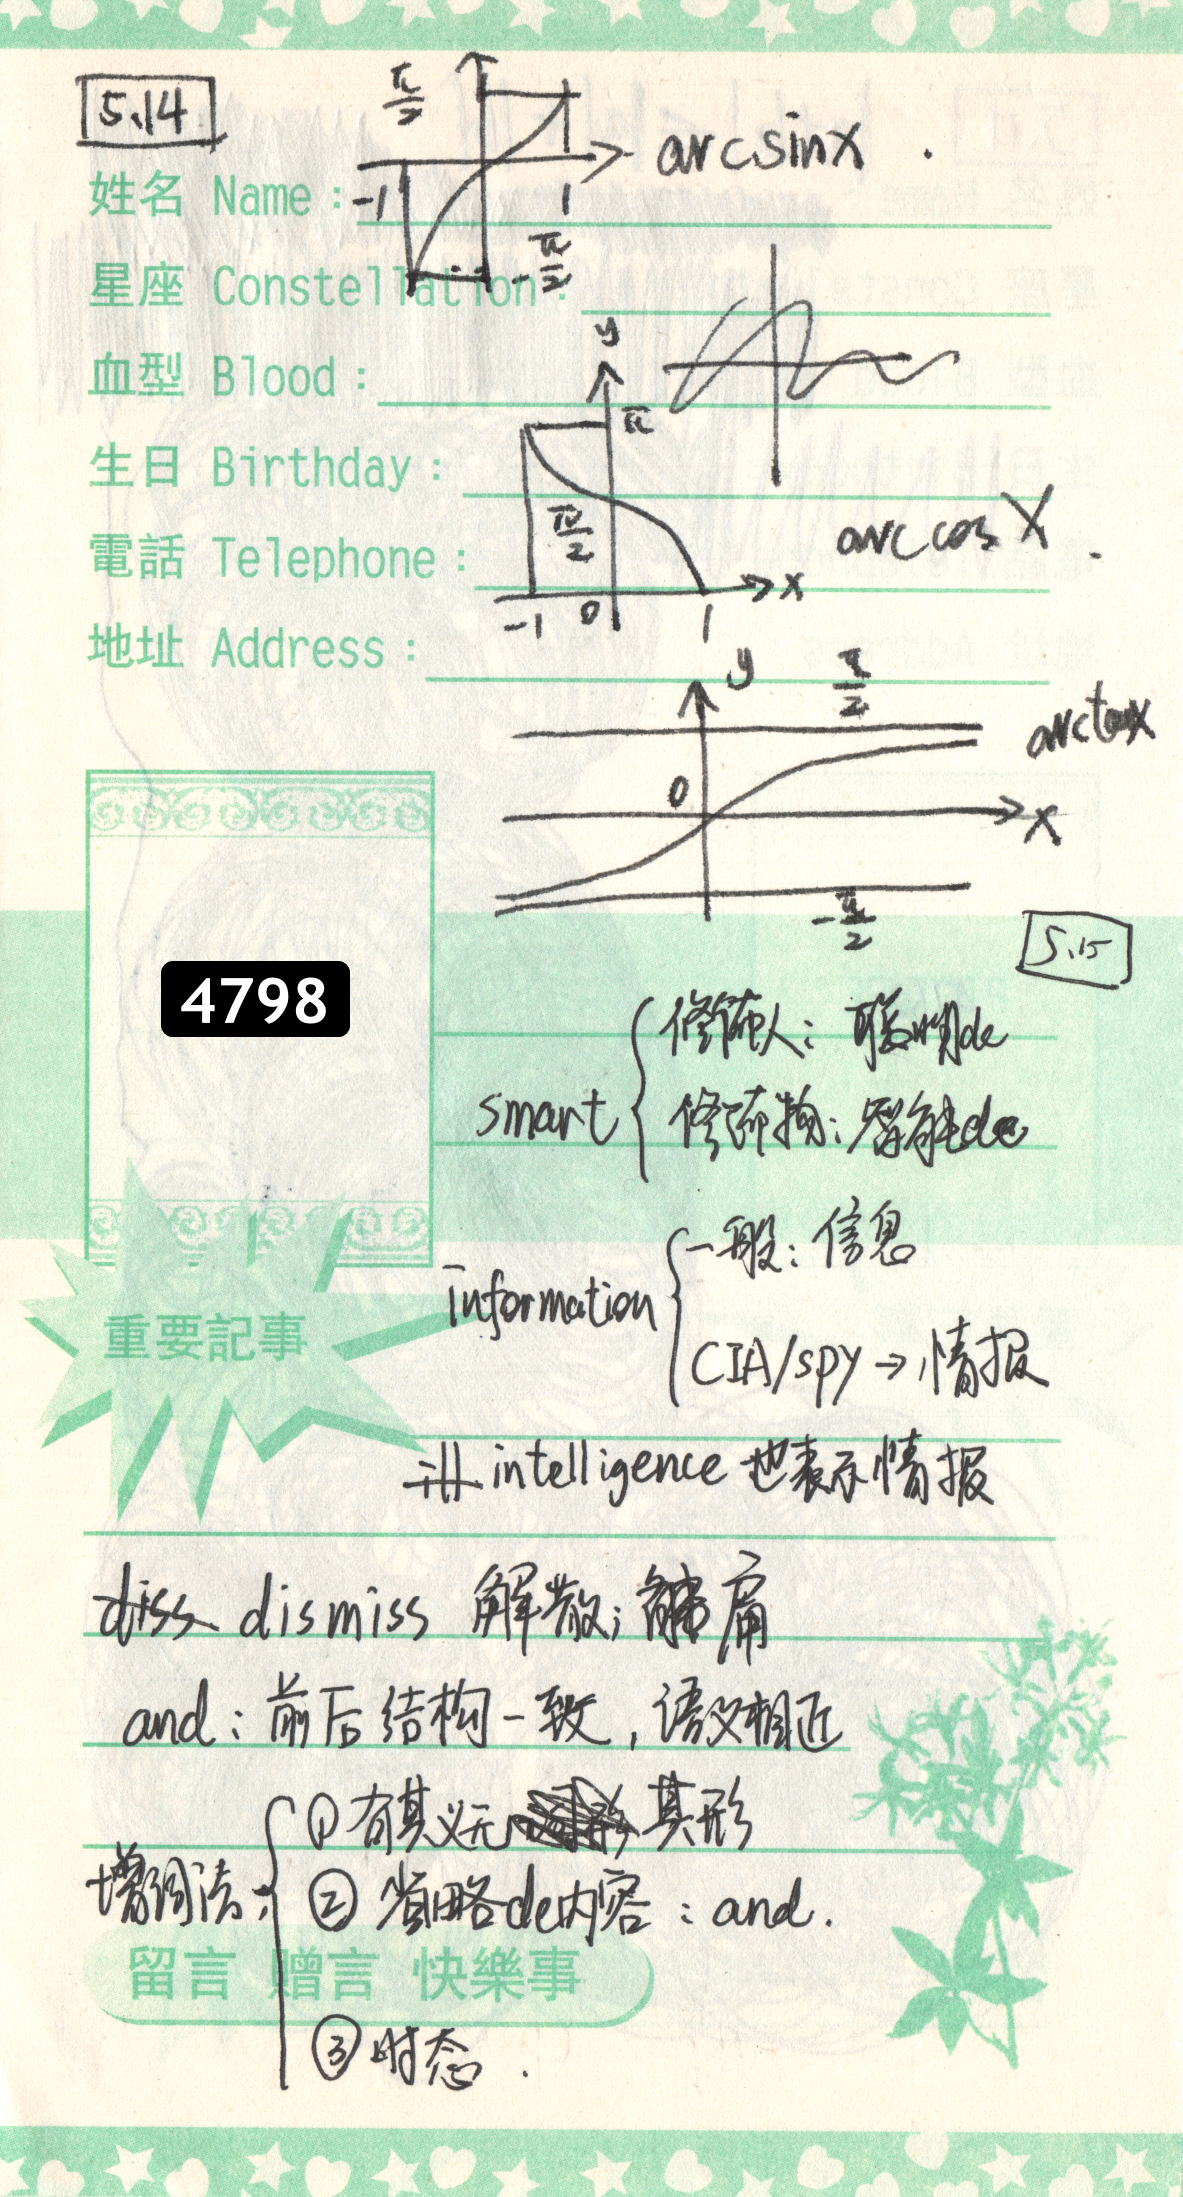 5.14
π/2
arcsinx .
姓名 Name :
-1 1
-π/2
星座 Constellation :
y
血型 Blood :
π
生日 Birthday :
π/2
arccos X .
電話 Telephone :
x
-1 0 1
地址 Address :
y π/2
arctanx
0
x
-π/2
5.15
4798
smart { 修饰人: 聪明de
修饰物: 智能de
information { 一般: 信息
CIA/spy → 情报
重要記事
intelligence 也表示情报
diss dismiss 解散; 解雇
and: 前后结构一致, 语义相近
增词法: { ① 有其义无 其形
② 省略de内容: and.
留言 贈言 快樂事
③ 时态.